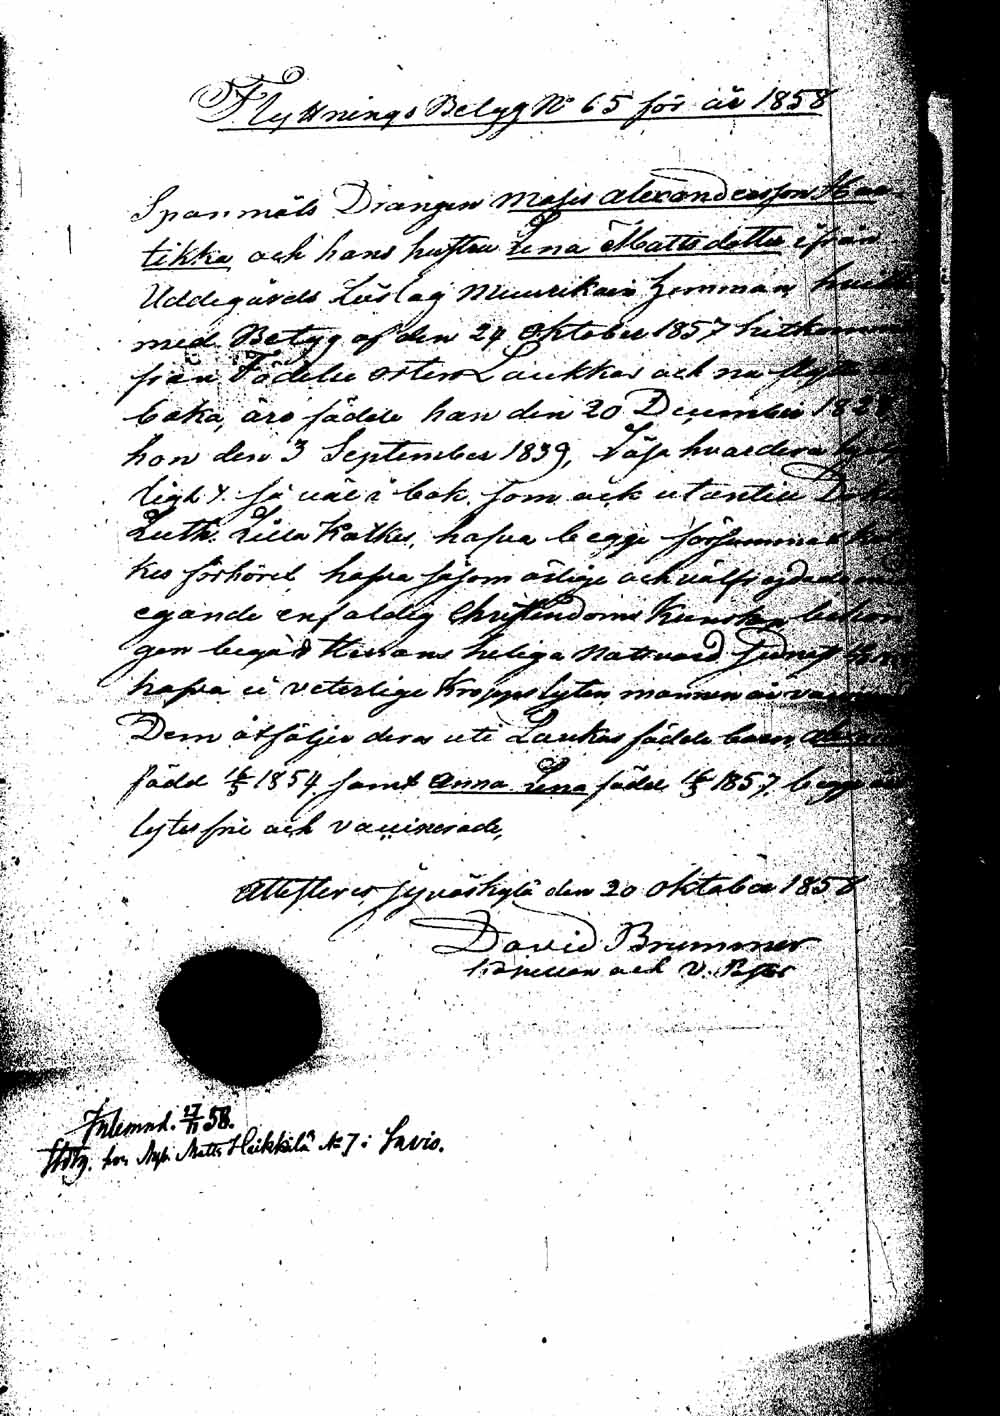 Flyttnings Betyg No 65 för år 1858
Spanmåls Drängen Moses Alexandersson Haa-
tikka och hans hustru Lena Mattsdotter ifrån
Uddegårds Löslag Muurikais hemman
med Betyg af den 24 Oktober 1857 hitkomne
från Födelse orten Laukkas och nu flytta
baka, äro födde han den 20 December
hon den 3 September 1839, Läsa hvardera
ligt så väl i bok som ock utantill
Luth. Lilla Katkes, hafva begge försummat
kes förhöret hafva såsom ärlige och välfrejdade
egande enfaldig Christendoms Kunskap
gen begått Herrans heliga Nattvard
hafva ei veterlige Kroppslyten mannen är
Dem åtföljer deras uti Laukas födde barn
född 1854 samt Anna Lena född 1857 begge
lytes frie och vaccinerade,
Attesteres Jyväskylä den 20 Oktober 1858
David Brummer
Kapellan och V. Pastor
Inlemnd. 17/11 58.
hos Matts Heikkilä No 7 i Savio.